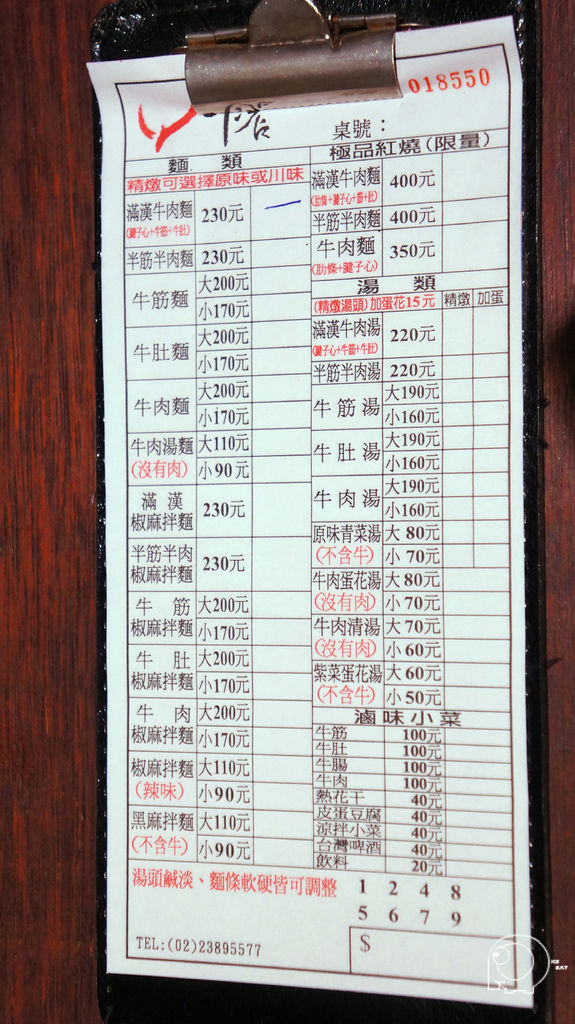 018550
桌號：
麵 類
精燉可選擇原味或川味
滿漢牛肉麵 230元
(腱子心+牛筋+牛肚)
半筋半肉麵 230元
牛筋麵 大200元
小170元
牛肚麵 大200元
小170元
牛肉麵 大200元
小170元
牛肉湯麵 大110元
(沒有肉) 小90元
滿漢
椒麻拌麵 230元
半筋半肉
椒麻拌麵 230元
牛筋 大200元
椒麻拌麵 小170元
牛肚 大200元
椒麻拌麵 小170元
牛肉 大200元
椒麻拌麵 小170元
椒麻拌麵 大110元
(辣味) 小90元
黑麻拌麵 大110元
(不含牛) 小90元
極品紅燒(限量)
滿漢牛肉麵 400元
(肋條+腱子心+筋+肚)
半筋半肉麵 400元
牛肉麵 350元
(肋條+腱子心)
湯 類
(精燉湯頭)加蛋花15元 精燉 加蛋
滿漢牛肉湯 220元
(腱子心+牛筋+牛肚)
半筋半肉湯 220元
牛筋湯 大190元
小160元
牛肚湯 大190元
小160元
牛肉湯 大190元
小160元
原味青菜湯 大 80元
(不含牛) 小 70元
牛肉蛋花湯 大 80元
(沒有肉) 小 70元
牛肉清湯 大 70元
(沒有肉) 小 60元
紫菜蛋花湯 大 60元
(不含牛) 小 50元
滷味小菜
牛筋 100元
牛肚 100元
牛腸 100元
牛肉 100元
熱花干 40元
皮蛋豆腐 40元
涼拌小菜 40元
台灣啤酒 40元
飲料 20元
湯頭鹹淡、麵條軟硬皆可調整
1 2 4 8
5 6 7 9
$
TEL:(02)23895577